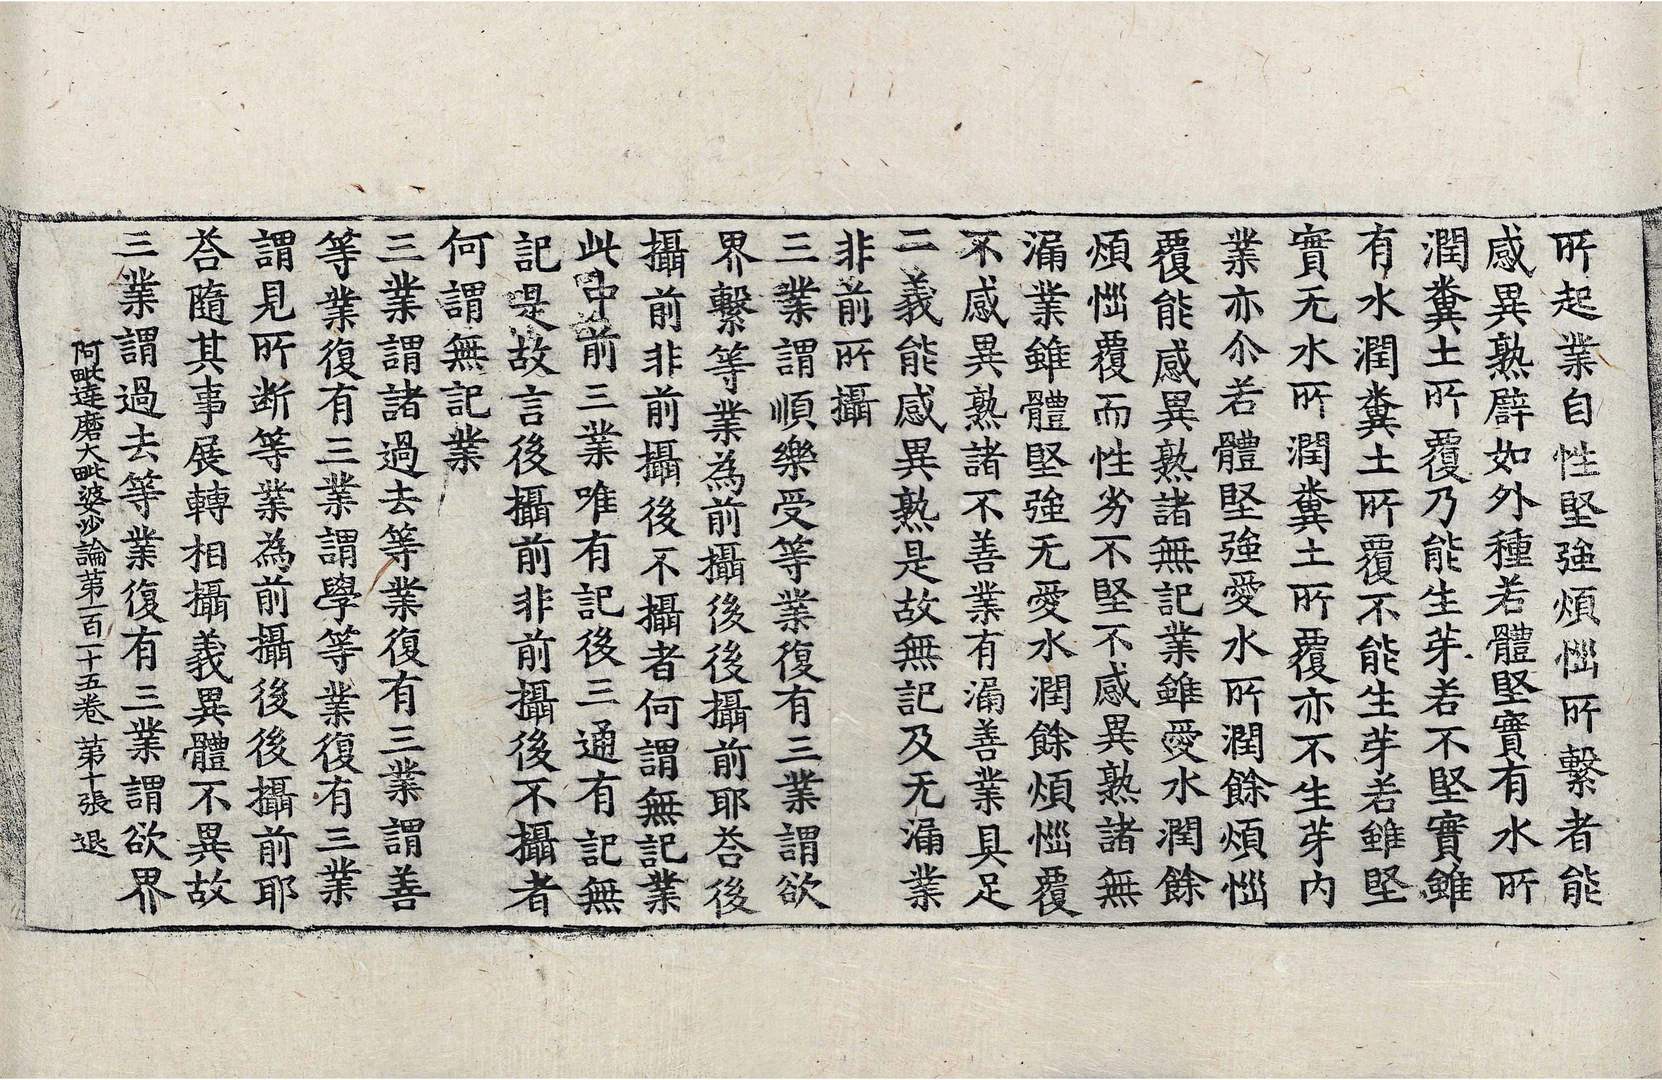 所起業自性堅強煩惱所繫者能
感異熟譬如外種若體堅實有水所
潤糞土所覆乃能生芽若不堅實雖
有水潤糞土所覆不能生芽若雖堅
實无水所潤糞土所覆亦不生芽內
業亦尒若體堅強愛水所潤餘煩惱
覆能感異熟諸無記業雖愛水潤餘
煩惱覆而性劣不堅不感異熟諸無
漏業雖體堅強无愛水潤餘煩惱覆
不感異熟諸不善業有漏善業具足
二義能感異熟是故無記及无漏業
非前所攝
三業謂順樂受等業復有三業謂欲
界繫等業為前攝後後攝前耶荅後
攝前非前攝後不攝者何謂無記業
此中前三業唯有記後三通有記無
記是故言後攝前非前攝後不攝者
何謂無記業
三業謂諸過去等業復有三業謂善
等業復有三業謂學等業復有三業
謂見所斷等業為前攝後後攝前耶
荅隨其事展轉相攝義異體不異故
三業謂過去等業復有三業謂欲界
阿毗達磨大毗婆沙論第一百一十五卷 第十張 退